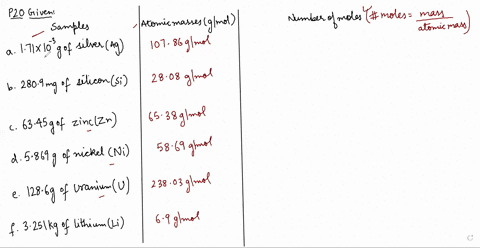 P20 Given:
Samples
Atomic masses (g/mol)
Number of moles (# moles = mass / atomic mass)
a. 1.71 × 10⁻³ g of silver (Ag)
107.86 g/mol
b. 280.9 mg of silicon (Si)
28.08 g/mol
c. 63.45 g of zinc (Zn)
65.38 g/mol
d. 5.869 g of nickel (Ni)
58.69 g/mol
e. 128.6 g of uranium (U)
238.03 g/mol
f. 3.251 kg of lithium (Li)
6.9 g/mol